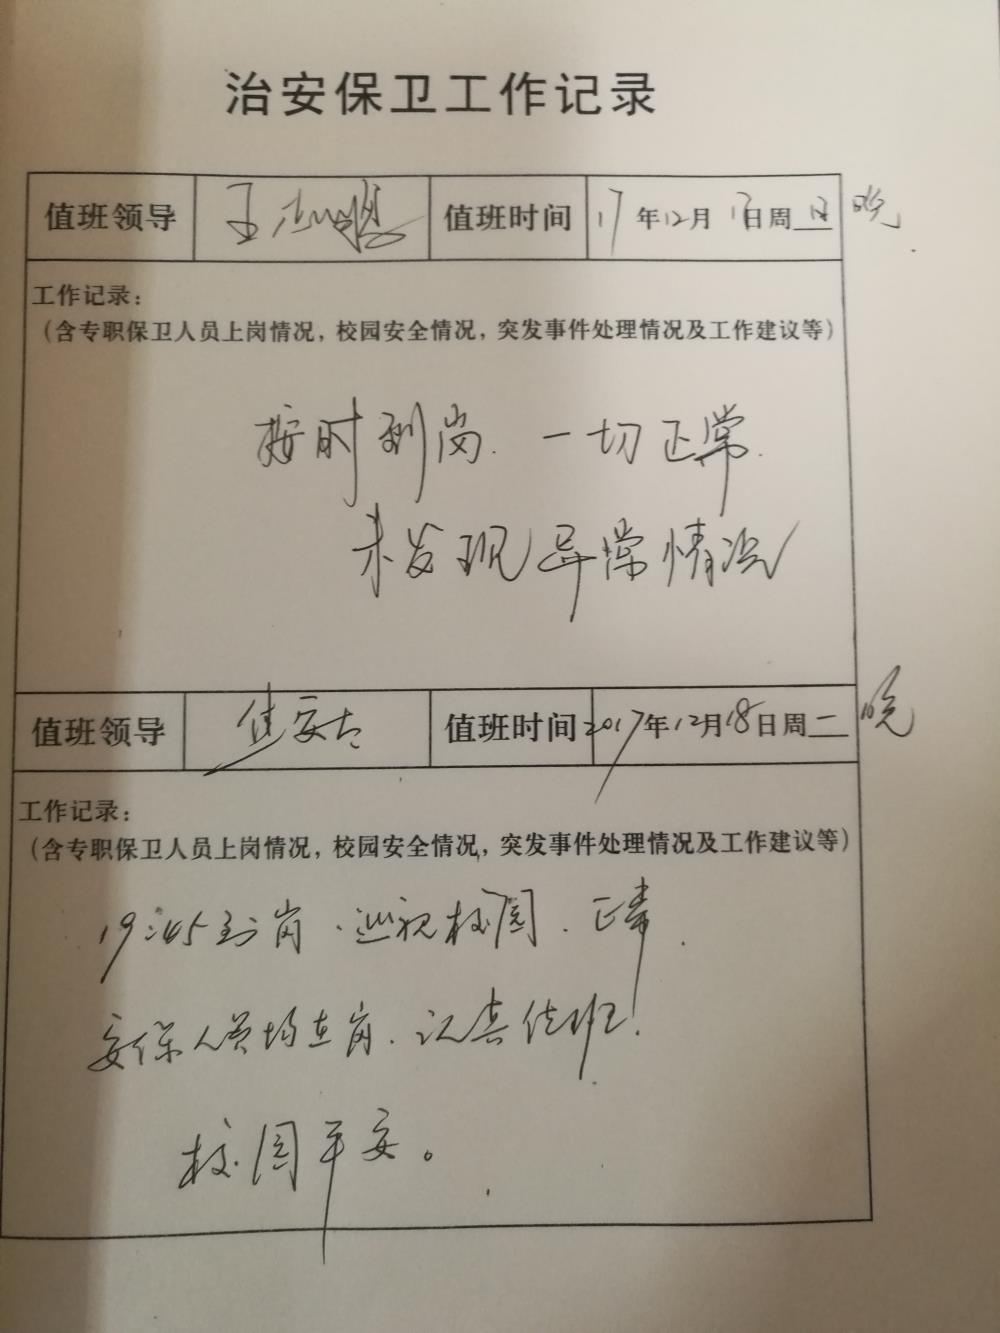 治安保卫工作记录
值班领导 王 值班时间 17年12月17日周日 晚
工作记录：
（含专职保卫人员上岗情况，校园安全情况，突发事件处理情况及工作建议等）
按时到岗．一切正常．
未发现异常情况
值班领导 值班时间 2017年12月18日周二 晚
工作记录：
（含专职保卫人员上岗情况，校园安全情况，突发事件处理情况及工作建议等）
19:45到岗．巡视校园．正常．
安保人员均在岗．认真值班！
校园平安。